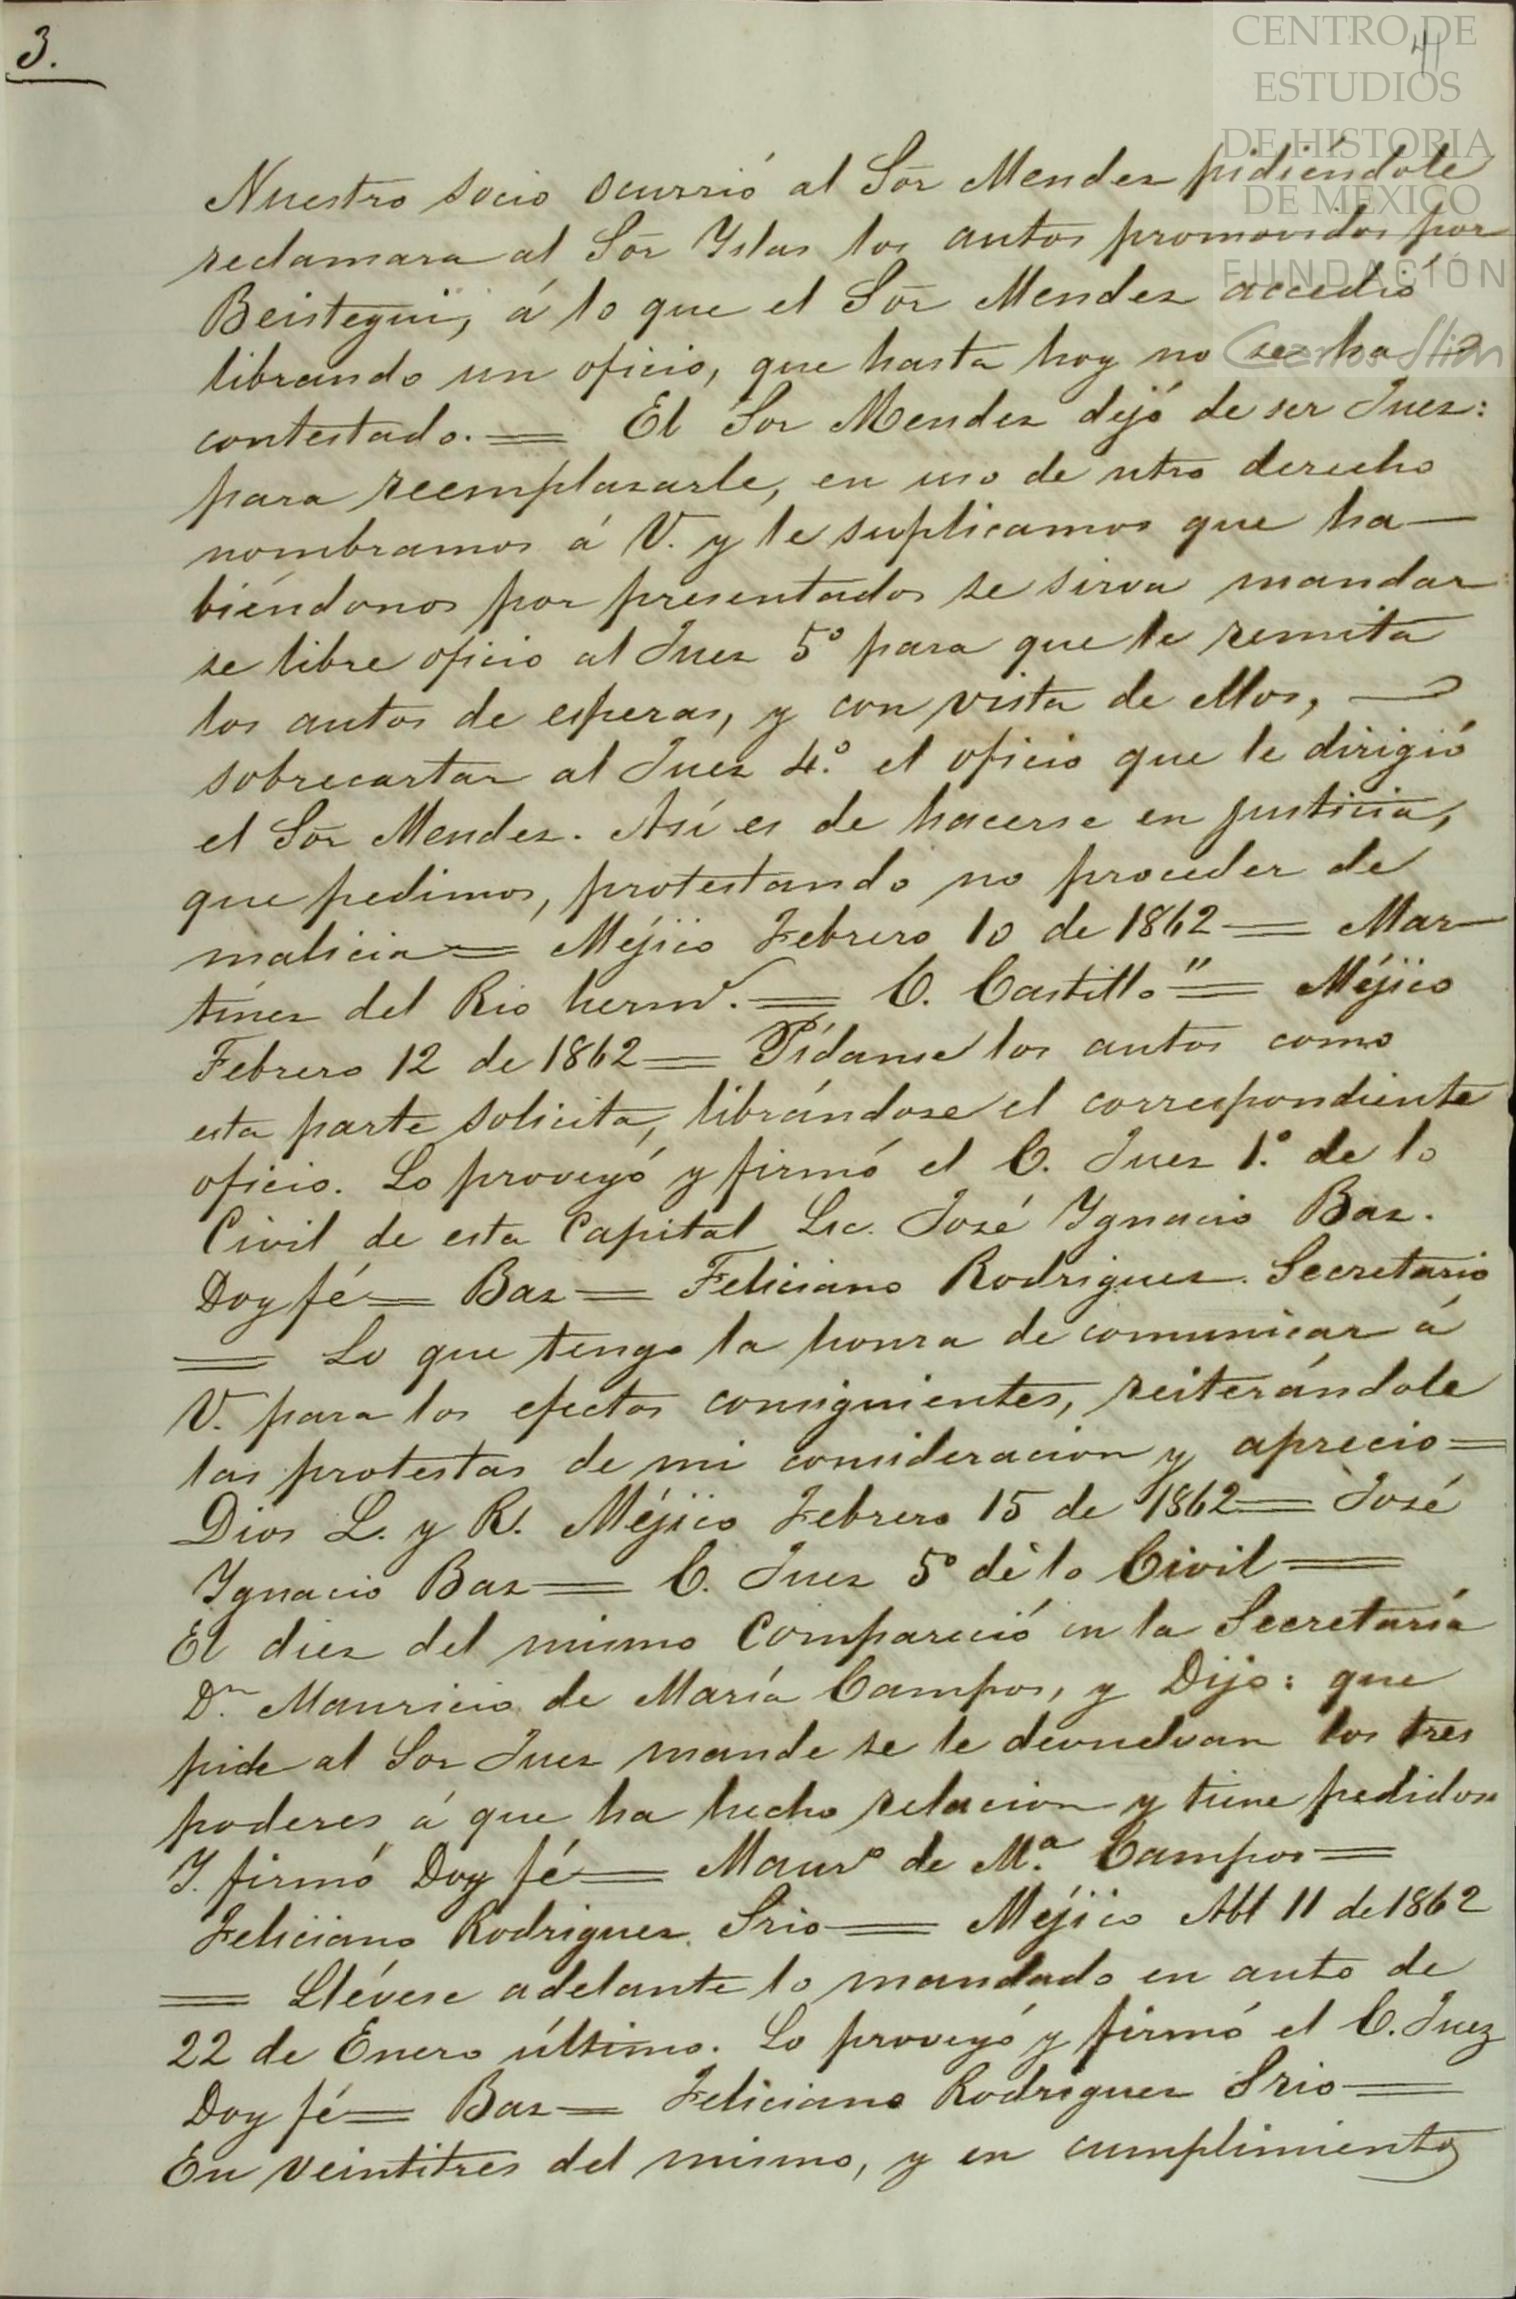 3.
41
CENTRO DE
ESTUDIOS
DE HISTORIA
DE MÉXICO
FUNDACIÓN
Carlos Slim
Nuestro socio ocurrió al Sōr Mendez pidiéndole
reclamara al Sōr Yslas los autos promovidos por
Beistegui, á lo que el Sōr Mendez accedió
librando un oficio, que hasta hoy no se ha
contestado. = El Sor Mendez dejó de ser Juez:
para reemplazarle, en uso de ntro derecho
nombramos á V. y le suplicamos que ha—
biéndonos por presentados se sirva mandar
se libre oficio al Juez 5º para que le remita
los autos de esperas, y con vista de ellos, —
sobrecartar al Juez 4.º el oficio que le dirigió
el Sōr Mendez. Así es de hacerse en justicia,
que pedimos, protestando no proceder de
malicia = Méjico Febrero 10 de 1862 = Mar—
tinez del Rio hermº. = C. Castillo" = Méjico
Febrero 12 de 1862 = Pídanse los autos como
esta parte solicita, librándose el correspondiente
oficio. Lo proveyó y firmó el C. Juez 1.º de lo
Civil de esta Capital Lic. José Ygnacio Baz.
Doy fé = Baz = Feliciano Rodriguez. Secretario
= Lo que tengo la honra de comunicar á
V. para los efectos consiguientes, reiterándole
las protestas de mi consideracion y aprecio =
Dios L. y R. Méjico Febrero 15 de 1862 = José
Ygnacio Baz = C. Juez 5º de lo Civil =
El diez del mismo compareció en la Secretaría
Dⁿ. Mauricio de María Campos, y Dijo: que
pide al Sor Juez mande se le devuelvan los tres
poderes á que ha hecho relacion y tiene pedidos.
Y. firmó Doy fé = Maurº de M.ª Campos =
Feliciano Rodriguez. Srio = Méjico Abl 11 de 1862
= Llévese adelante lo mandado en auto de
22 de Enero último. Lo proveyó y firmó el C. Juez
Doy fé = Baz = Feliciano Rodriguez Srio =
En veintitres del mismo, y en cumplimiento